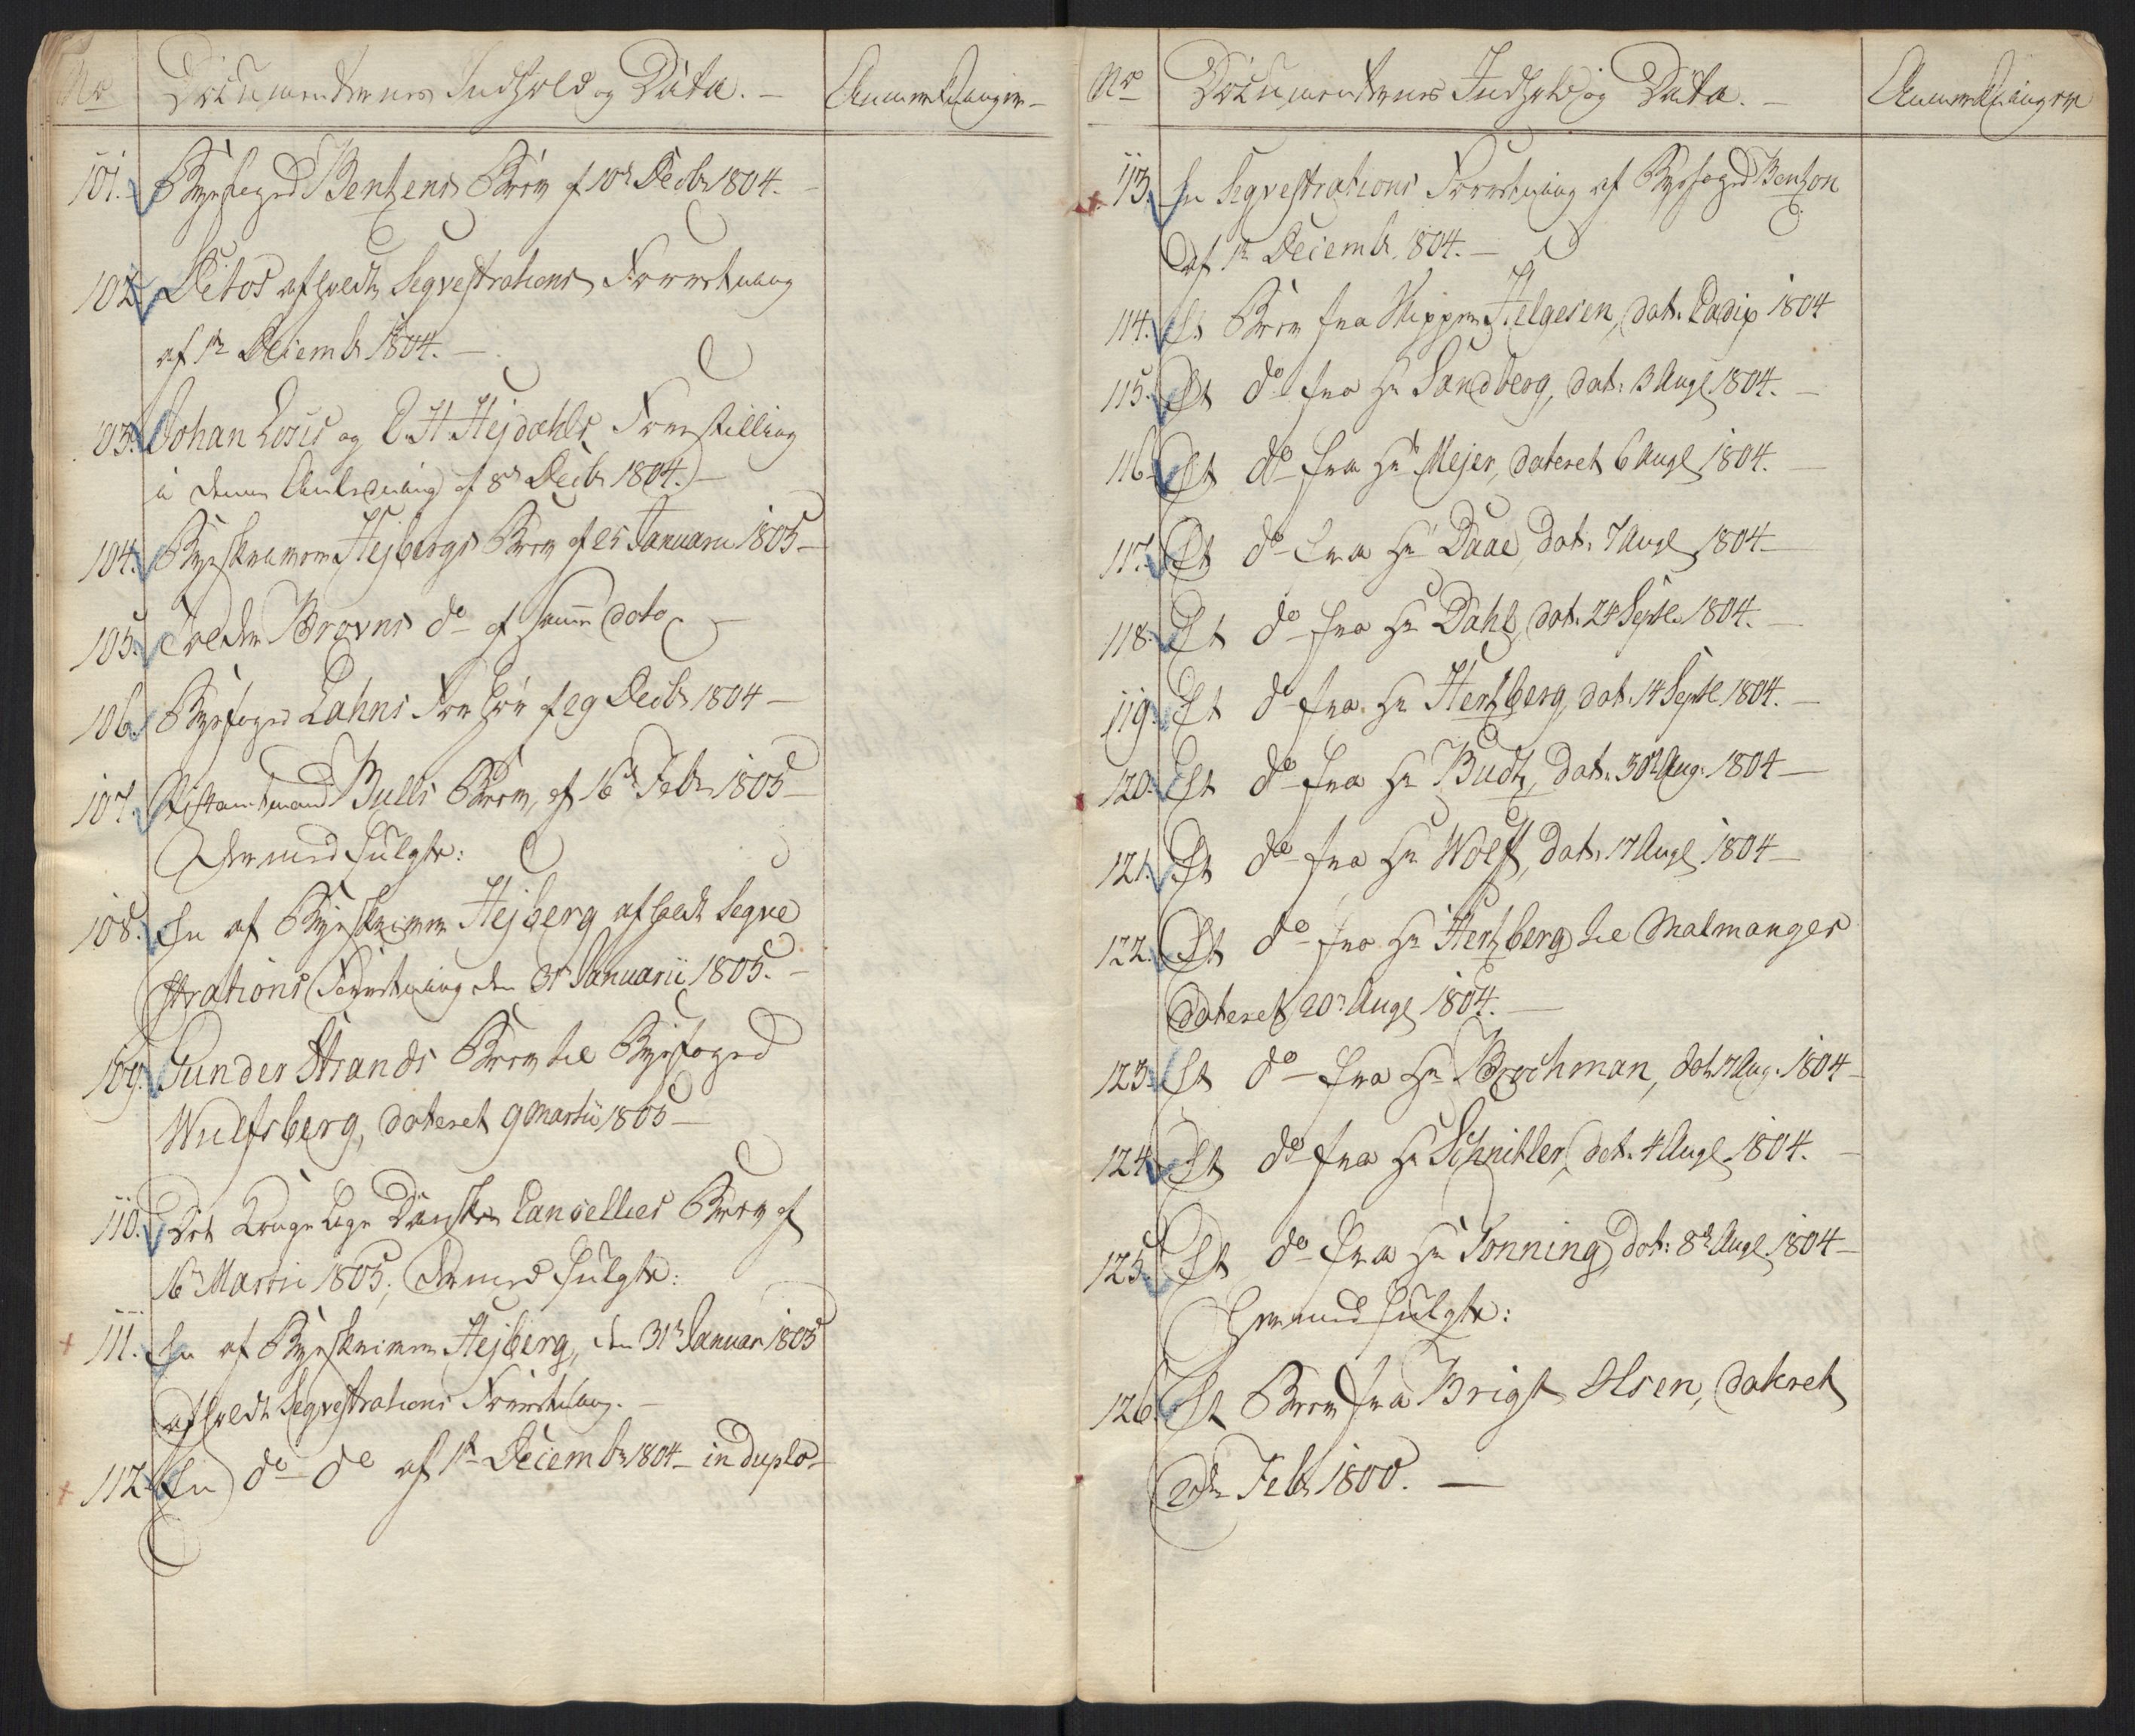 No
Documenternes Indhold og Data. –
Anmerkninger –
101. Byefoged Bentzens Brev af 10de Decbr 1804. –
102. Ditos afholdte Seqvestrations Forretning
af 1te Decembr 1804. –
103. Johan Losis og C. H. Hejdahls Forestilling
i denne Anledning af 8de Decbr 1804. –
104. Byeskriver Hejbergs Brev af 25 Januarii 1805 –
105. Tolder Brovns do af samme dato –
106. Byefoged Lahns Forhør af 29 Decbr 1804 –
107. Stiftamtmand Bulls Brev, af 16de Febr 1805 –
Hermed fulgte:
108. En af Byeskriver Hejberg afholdt Seqve
strations Forretning den 31te Januarii 1805. –
109. Gunder Strands Brev til Byefoged
Wulfsberg, dateret 9 Martii 1805 –
110. Det Kongelige Danske Cancellies Brev af
16de Martii 1805; Hermed fulgte:
111. En af Byeskriver Hejberg, den 31te Januar 1805
afholdt Seqvestrations Forretning. –
112. En do do af 1te Decembr 1804 – in duplo –
No
Documenternes Indhold og Data. –
Anmerkninger
113. En Seqvestrations Forretning af Byefoged Bentzon
af 1te Decembr 1804. –
114. Et Brev fra Skipper Helgesen, dat. Cadix 1804
115. Et do fra Hr Sandberg, dat. 3 Augt 1804. –
116. Et do fra Hr Mejer, dateret 6 Augt 1804. –
117. Et do fra Hr Daae, dat. 7 Augt 1804 –
118. Et do fra Hr Dahl, dat. 24 Septbr 1804. –
119. Et do fra Hr Hertzberg, dat. 14 Septbr 1804. –
120. Et do fra Hr Budtz, dat. 30te Aug. 1804 –
121. Et do fra Hr Wolff, dat. 17 Augt 1804 –
122. Et do fra Hr Hertzberg til Malmanger
dateret 20de Augt 1804. –
123. Et do fra Hr Brochman, dat. 7 Aug. 1804 –
124. Et do fra Hr Schnitler, dat. 4 Augt 1804. –
125. Et do fra Hr Tonning, dat: 8de Augt 1804 –
Hermed fulgte:
126. Et Brev fra Brigt Olsen, dateret
2den Febr 1800. –